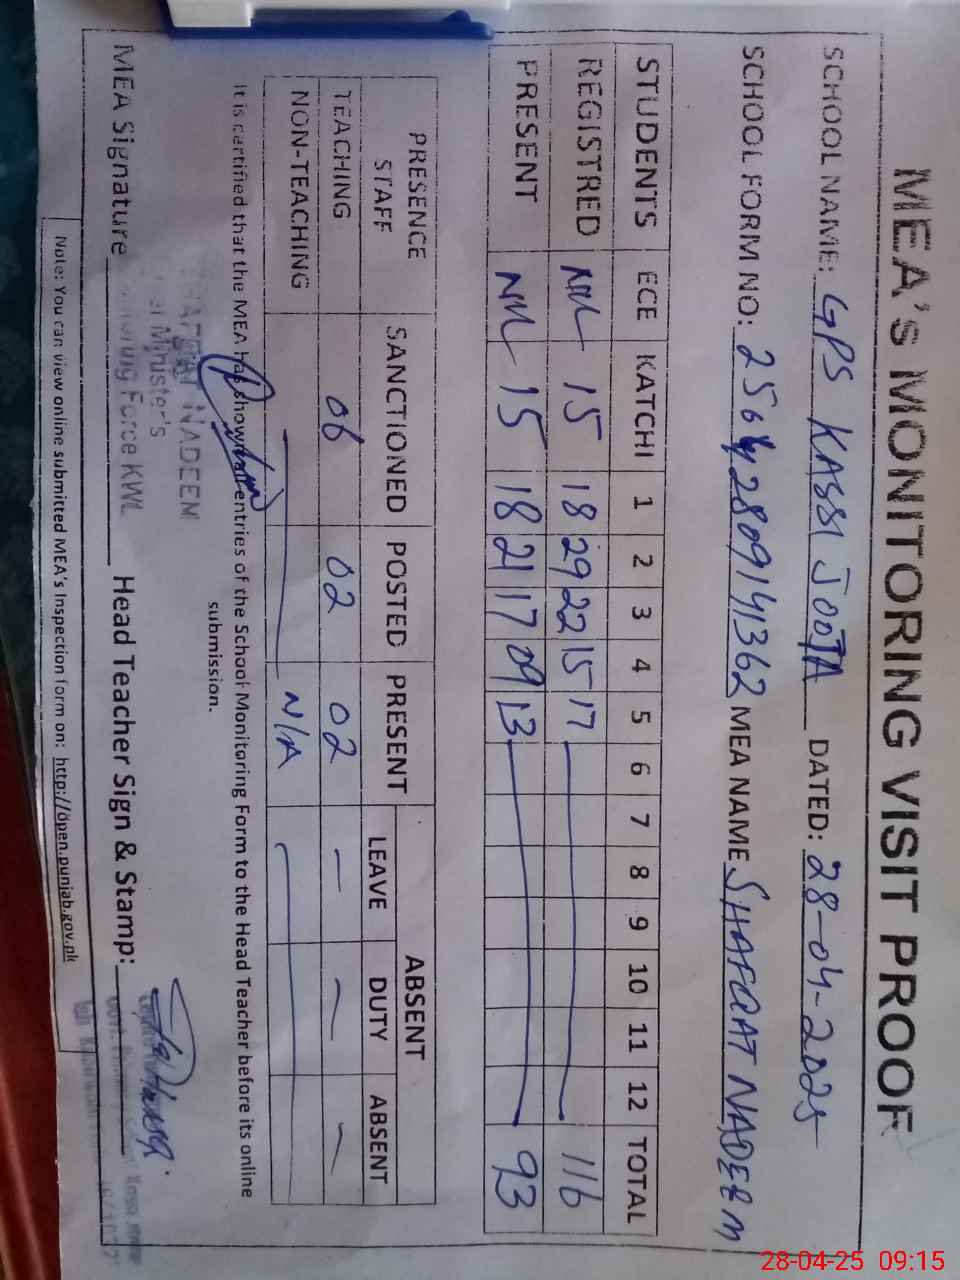 MEA'S MONITORING VISIT PROOF
SCHOOL NAME: GPS KASSI JOOTA DATED: 28-04-2025
SCHOOL FORM NO: MEA NAME SHAFQAT NADEEM
STUDENTS ECE KATCHI 1 2 3 4 5 6 7 8 9 10 11 12 TOTAL
REGISTRED Nil 15 18 29 22 15 17 116
PRESENT Nil 15 18 21 17 09 13 93
PRESENCE STAFF SANCTIONED POSTED PRESENT ABSENT
LEAVE DUTY ABSENT
TEACHING 06 02 02 — — —
NON-TEACHING N/A
It is certified that the MEA has shown all entries of the School Monitoring Form to the Head Teacher before its online
submission.
NADEEM
Minister's
Force KWL
MEA Signature Head Teacher Sign & Stamp:
Note: You can view online submitted MEA's Inspection form on: http://open.punjab.gov.pk
28-04-25 09:15